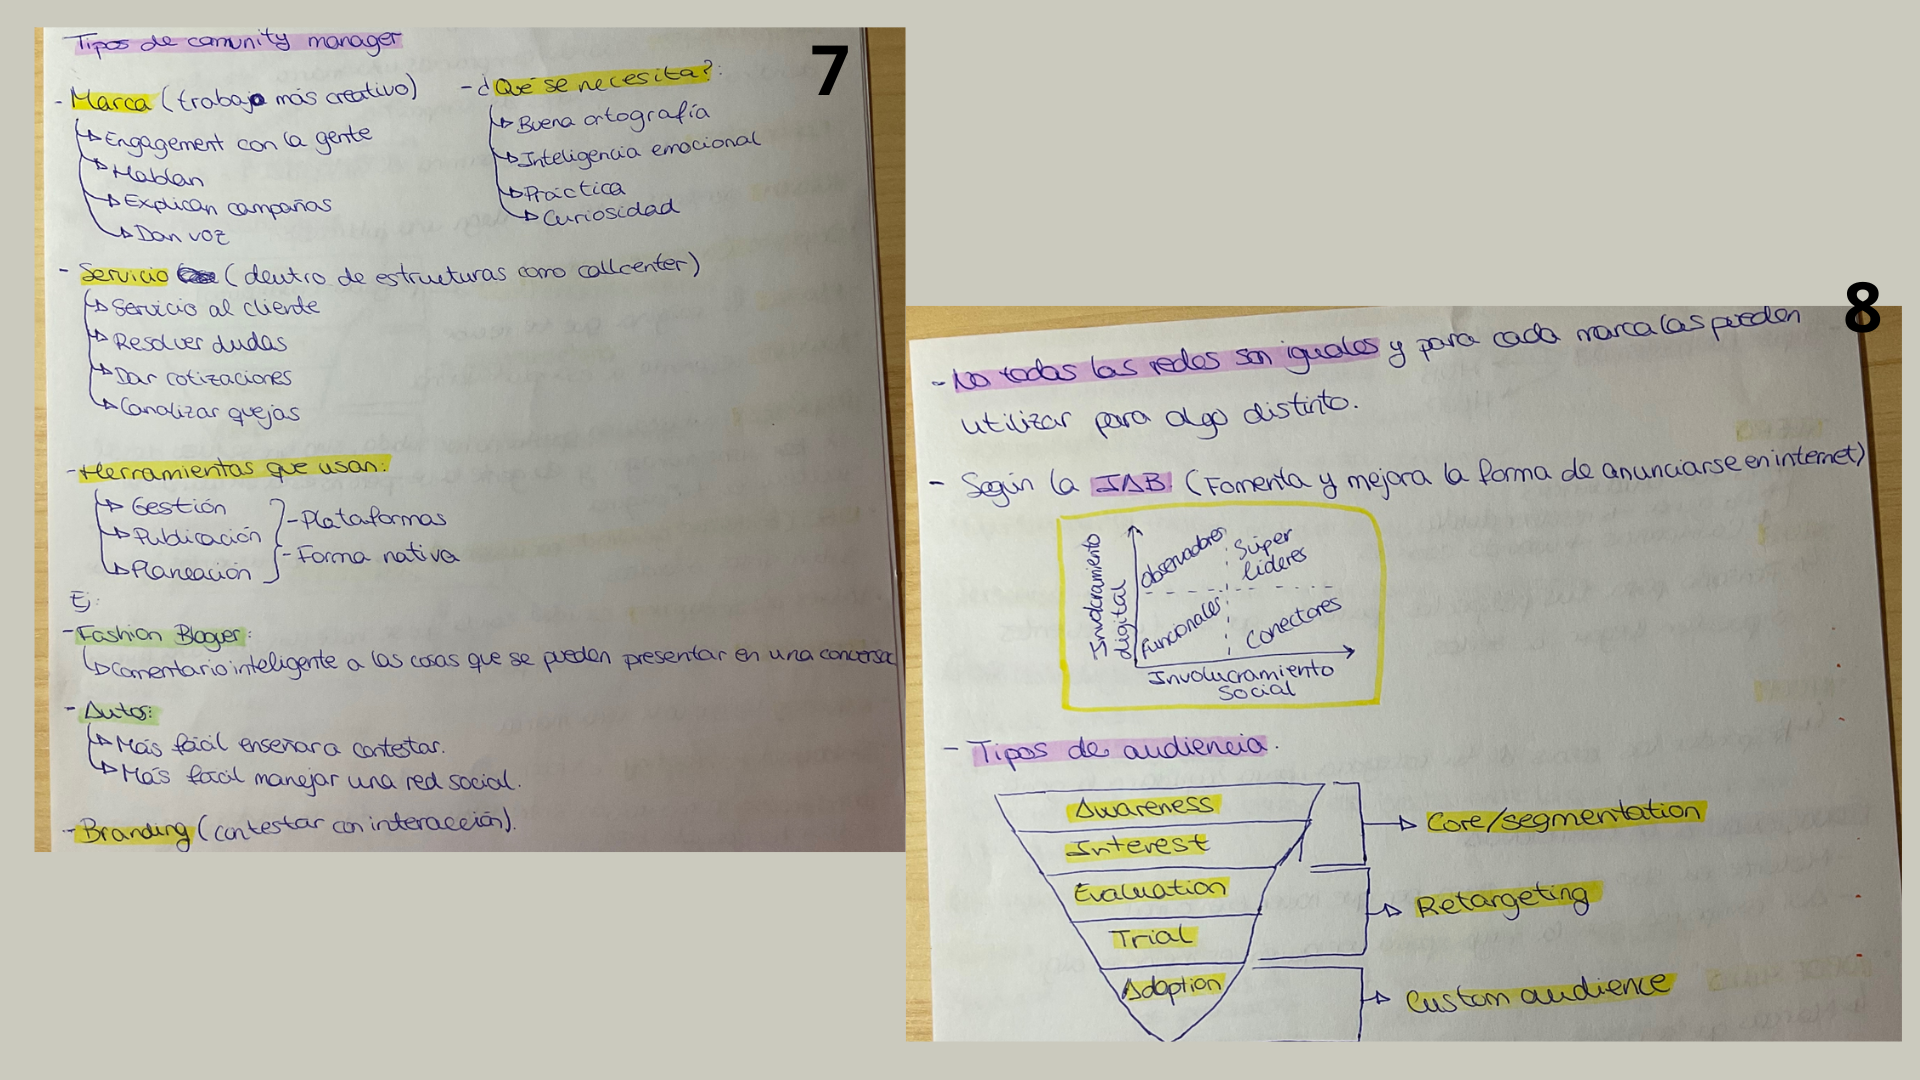 7
Tipos de comunity manager
- Marca (trabajo más creativo)
Engagement con la gente
Hablan
Explican campañas
Dan voz
- ¿Qué se necesita?:
Buena ortografía
Inteligencia emocional
Práctica
Curiosidad
- Servicio (dentro de estructuras como callcenter)
Servicio al cliente
Resolver dudas
Dar cotizaciones
Canalizar quejas
- Herramientas que usan:
Gestión
Publicación
Planeación
- Plataformas
- Forma nativa
Ej:
- Fashion Bloger:
Comentario inteligente a las cosas que se pueden presentar en una conversac
- Autos:
Más fácil enseñar a contestar.
Más fácil manejar una red social.
- Branding (contestar con interacción).
8
- No todas las redes son iguales y para cada marca las pueden
utilizar para algo distinto.
- Según la IAB (Fomenta y mejora la forma de anunciarse en internet)
Involcramiento
digital
Observadores
Súper
líderes
Funcionales
Conectores
Involucramiento
Social
- Tipos de audiencia.
Awareness
Interest
Evaluation
Trial
Adoption
Core/segmentation
Retargeting
Custom audience